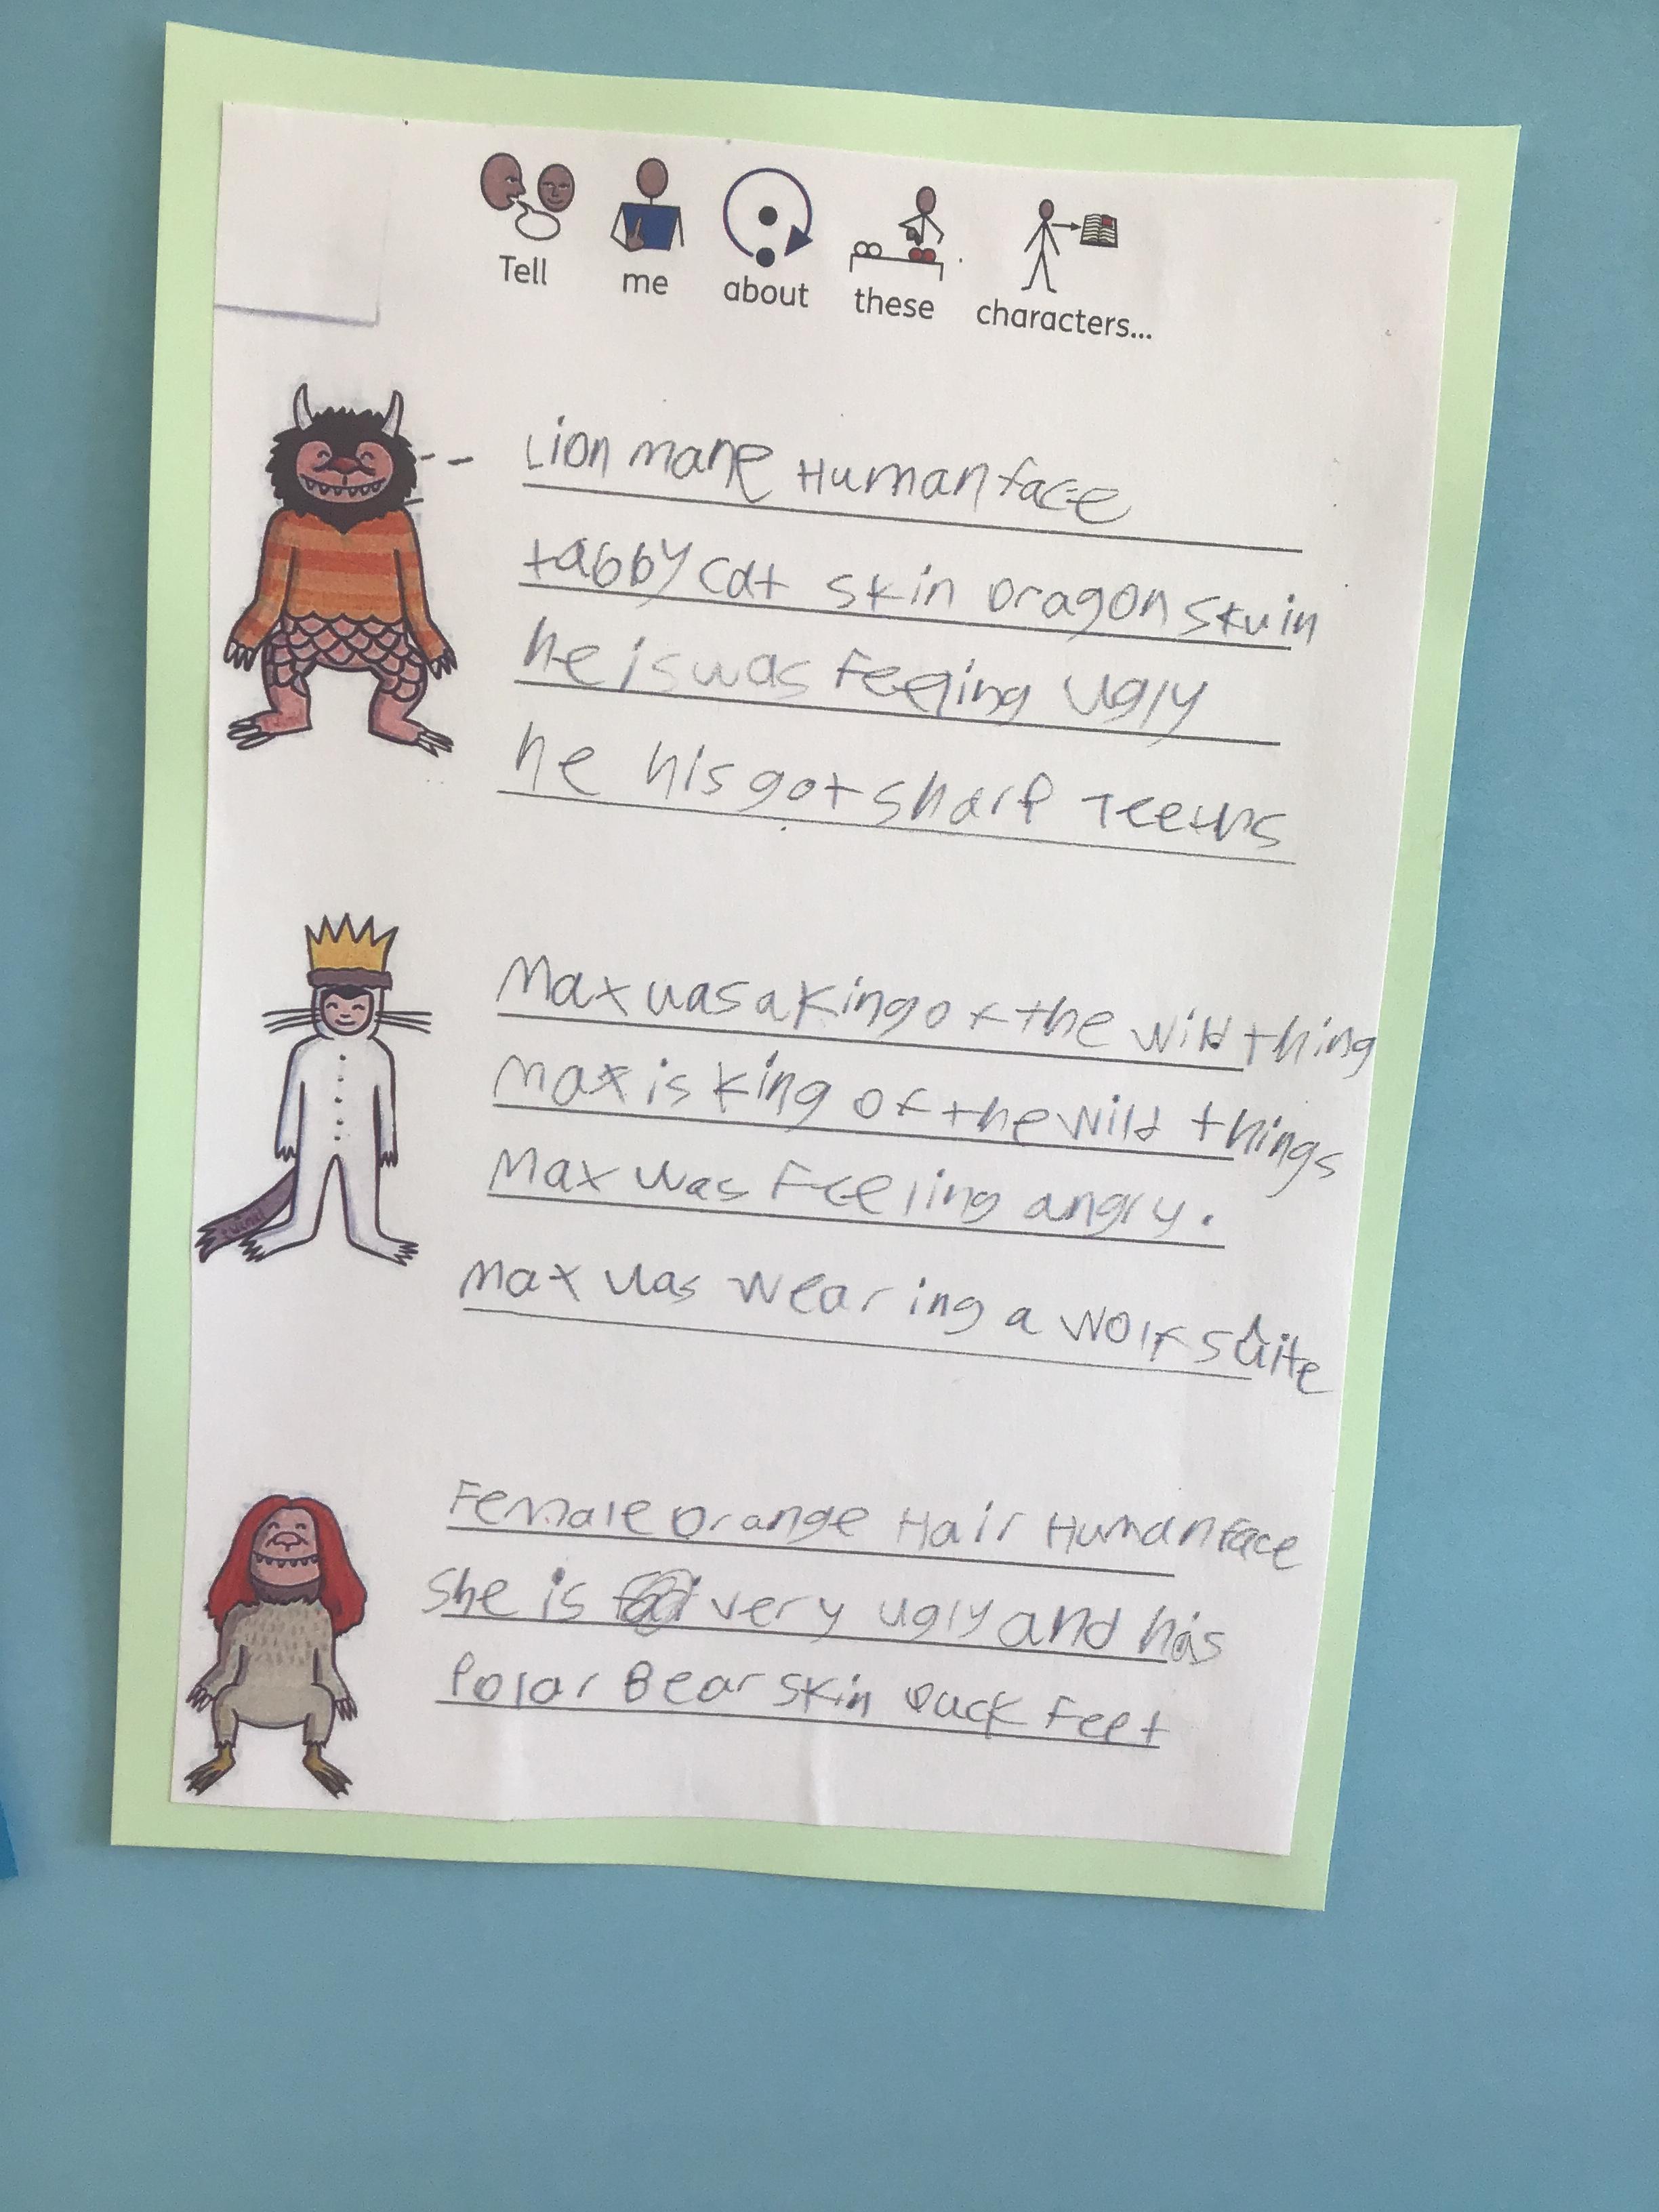 Tell me about these characters...
Lion mane Human face
tabby cat skin Dragon skuin
he is was feeling ugly
he his got sharp Teeths
Max was a king of the wild thing
Max is king of the wild things
Max was Feeling angry.
Max was wearing a wolf suite
Female orange Hair Human face
She is very ugly and has
Polar Bear skin Duck Feet